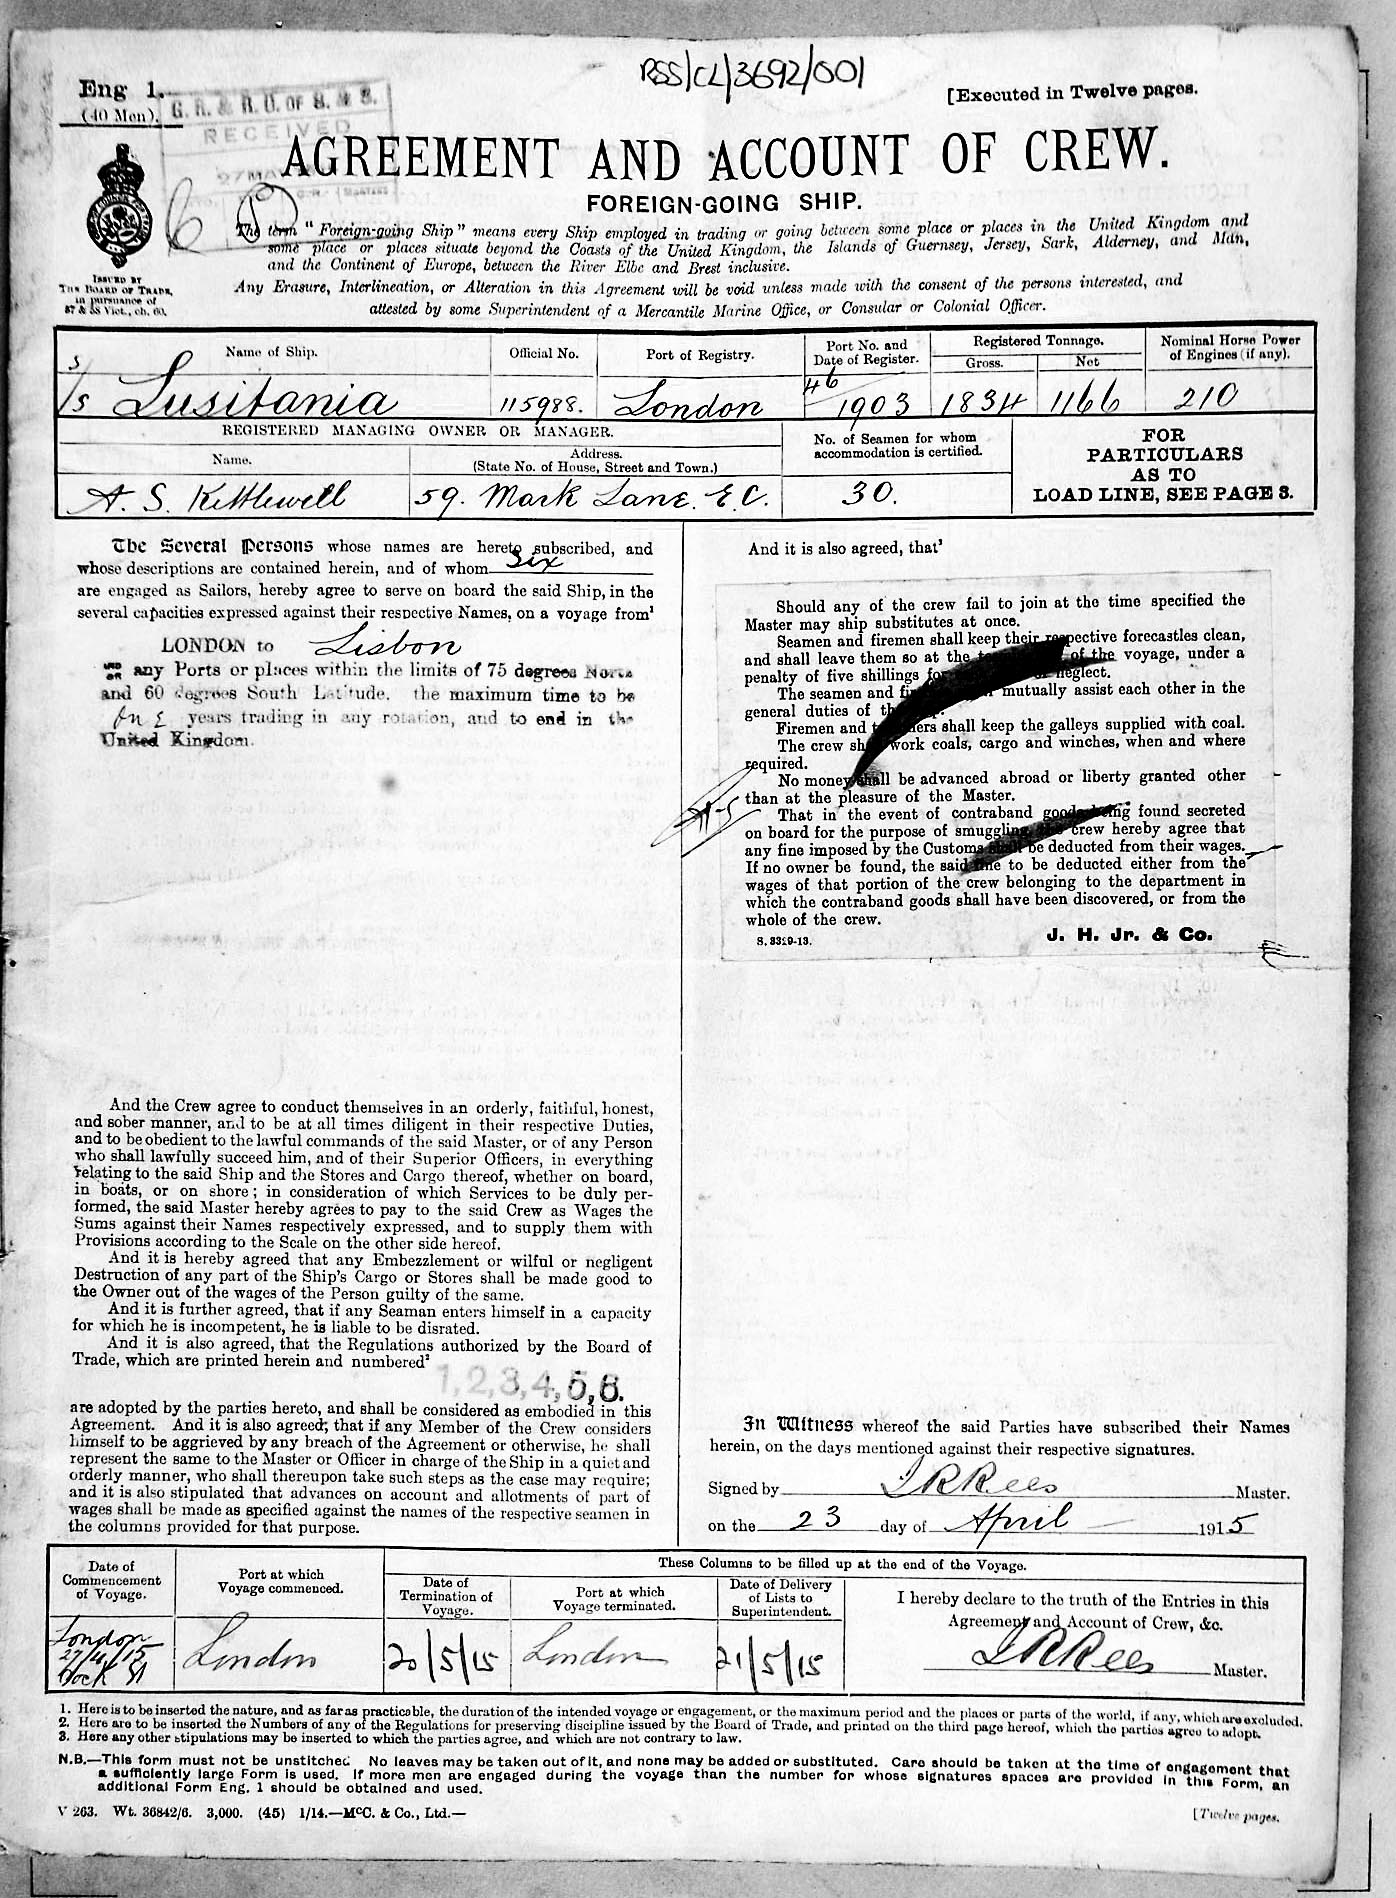 RSS/CL/3692/001
Eng 1.
(40 Men).
[Executed in Twelve pages.
G. R. & R. O. OF S. & S.
RECEIVED
27 MA
AGREEMENT AND ACCOUNT OF CREW.
FOREIGN-GOING SHIP.
The term "Foreign-going Ship" means every Ship employed in trading or going between some place or places in the United Kingdom and
some place or places situate beyond the Coasts of the United Kingdom, the Islands of Guernsey, Jersey, Sark, Alderney, and Man,
and the Continent of Europe, between the River Elbe and Brest inclusive.
Any Erasure, Interlineation, or Alteration in this Agreement will be void unless made with the consent of the persons interested, and
attested by some Superintendent of a Mercantile Marine Office, or Consular or Colonial Officer.
ISSUED BY
THE BOARD OF TRADE,
in pursuance of
57 & 58 Vict., ch. 60.
Name of Ship.
Official No.
Port of Registry.
Port No. and
Date of Register.
Registered Tonnage.
Gross.
Net
Nominal Horse Power
of Engines (if any).
S/S Lusitania
115988.
London
46
1903
1834
1166
210
REGISTERED MANAGING OWNER OR MANAGER.
Name.
Address.
(State No. of House, Street and Town.)
No. of Seamen for whom
accommodation is certified.
FOR
PARTICULARS
AS TO
LOAD LINE, SEE PAGE 3.
A. S. Kettlewell
59. Mark Lane. E.C.
30.
The Several Persons whose names are hereto subscribed, and
whose descriptions are contained herein, and of whom six
are engaged as Sailors, hereby agree to serve on board the said Ship, in the
several capacities expressed against their respective Names, on a voyage from¹
LONDON to Lisbon
and/or any Ports or places within the limits of 75 degrees North
and 60 degrees South Latitude, the maximum time to be
One years trading in any rotation, and to end in the
United Kingdom.
And the Crew agree to conduct themselves in an orderly, faithful, honest,
and sober manner, and to be at all times diligent in their respective Duties,
and to be obedient to the lawful commands of the said Master, or of any Person
who shall lawfully succeed him, and of their Superior Officers, in everything
relating to the said Ship and the Stores and Cargo thereof, whether on board,
in boats, or on shore; in consideration of which Services to be duly per-
formed, the said Master hereby agrees to pay to the said Crew as Wages the
Sums against their Names respectively expressed, and to supply them with
Provisions according to the Scale on the other side hereof.
And it is hereby agreed that any Embezzlement or wilful or negligent
Destruction of any part of the Ship's Cargo or Stores shall be made good to
the Owner out of the wages of the Person guilty of the same.
And it is further agreed, that if any Seaman enters himself in a capacity
for which he is incompetent, he is liable to be disrated.
And it is also agreed, that the Regulations authorized by the Board of
Trade, which are printed herein and numbered²
1, 2, 3, 4, 5, 6.
are adopted by the parties hereto, and shall be considered as embodied in this
Agreement. And it is also agreed, that if any Member of the Crew considers
himself to be aggrieved by any breach of the Agreement or otherwise, he shall
represent the same to the Master or Officer in charge of the Ship in a quiet and
orderly manner, who shall thereupon take such steps as the case may require;
and it is also stipulated that advances on account and allotments of part of
wages shall be made as specified against the names of the respective seamen in
the columns provided for that purpose.
And it is also agreed, that³
Should any of the crew fail to join at the time specified the
Master may ship substitutes at once.
Seamen and firemen shall keep their respective forecastles clean,
and shall leave them so at the of the voyage, under a
penalty of five shillings for neglect.
The seamen and mutually assist each other in the
general duties of
Firemen and shall keep the galleys supplied with coal.
The crew shall work coals, cargo and winches, when and where
required.
No money shall be advanced abroad or liberty granted other
than at the pleasure of the Master.
That in the event of contraband goods being found secreted
on board for the purpose of smuggling, the crew hereby agree that
any fine imposed by the Customs shall be deducted from their wages.
If no owner be found, the said fine to be deducted either from the
wages of that portion of the crew belonging to the department in
which the contraband goods shall have been discovered, or from the
whole of the crew.
S. 3329-13.
J. H. Jr. & Co.
In Witness whereof the said Parties have subscribed their Names
herein, on the days mentioned against their respective signatures.
Signed by J R Rees Master.
on the 23 day of April 1915
Date of
Commencement
of Voyage.
Port at which
Voyage commenced.
These Columns to be filled up at the end of the Voyage.
Date of
Termination of
Voyage.
Port at which
Voyage terminated.
Date of Delivery
of Lists to
Superintendent.
I hereby declare to the truth of the Entries in this
Agreement and Account of Crew, &c.
London
27/4/15
Dock St
London
20/5/15
London
21/5/15
J R Rees Master.
1. Here is to be inserted the nature, and as far as practicable, the duration of the intended voyage or engagement, or the maximum period and the places or parts of the world, if any, which are excluded.
2. Here are to be inserted the Numbers of any of the Regulations for preserving discipline issued by the Board of Trade, and printed on the third page hereof, which the parties agree to adopt.
3. Here any other stipulations may be inserted to which the parties agree, and which are not contrary to law.
N.B.—This form must not be unstitched. No leaves may be taken out of it, and none may be added or substituted. Care should be taken at the time of engagement that
a sufficiently large Form is used. If more men are engaged during the voyage than the number for whose signatures spaces are provided in this Form, an
additional Form Eng. 1 should be obtained and used.
V 263. Wt. 36842/6. 3,000. (45) 1/14.—McC. & Co., Ltd.—
[Twelve pages.